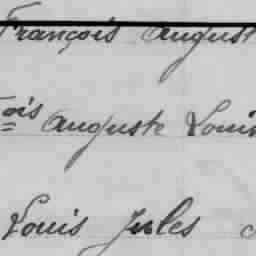 François August
ois Auguste Louis
Louis Jules